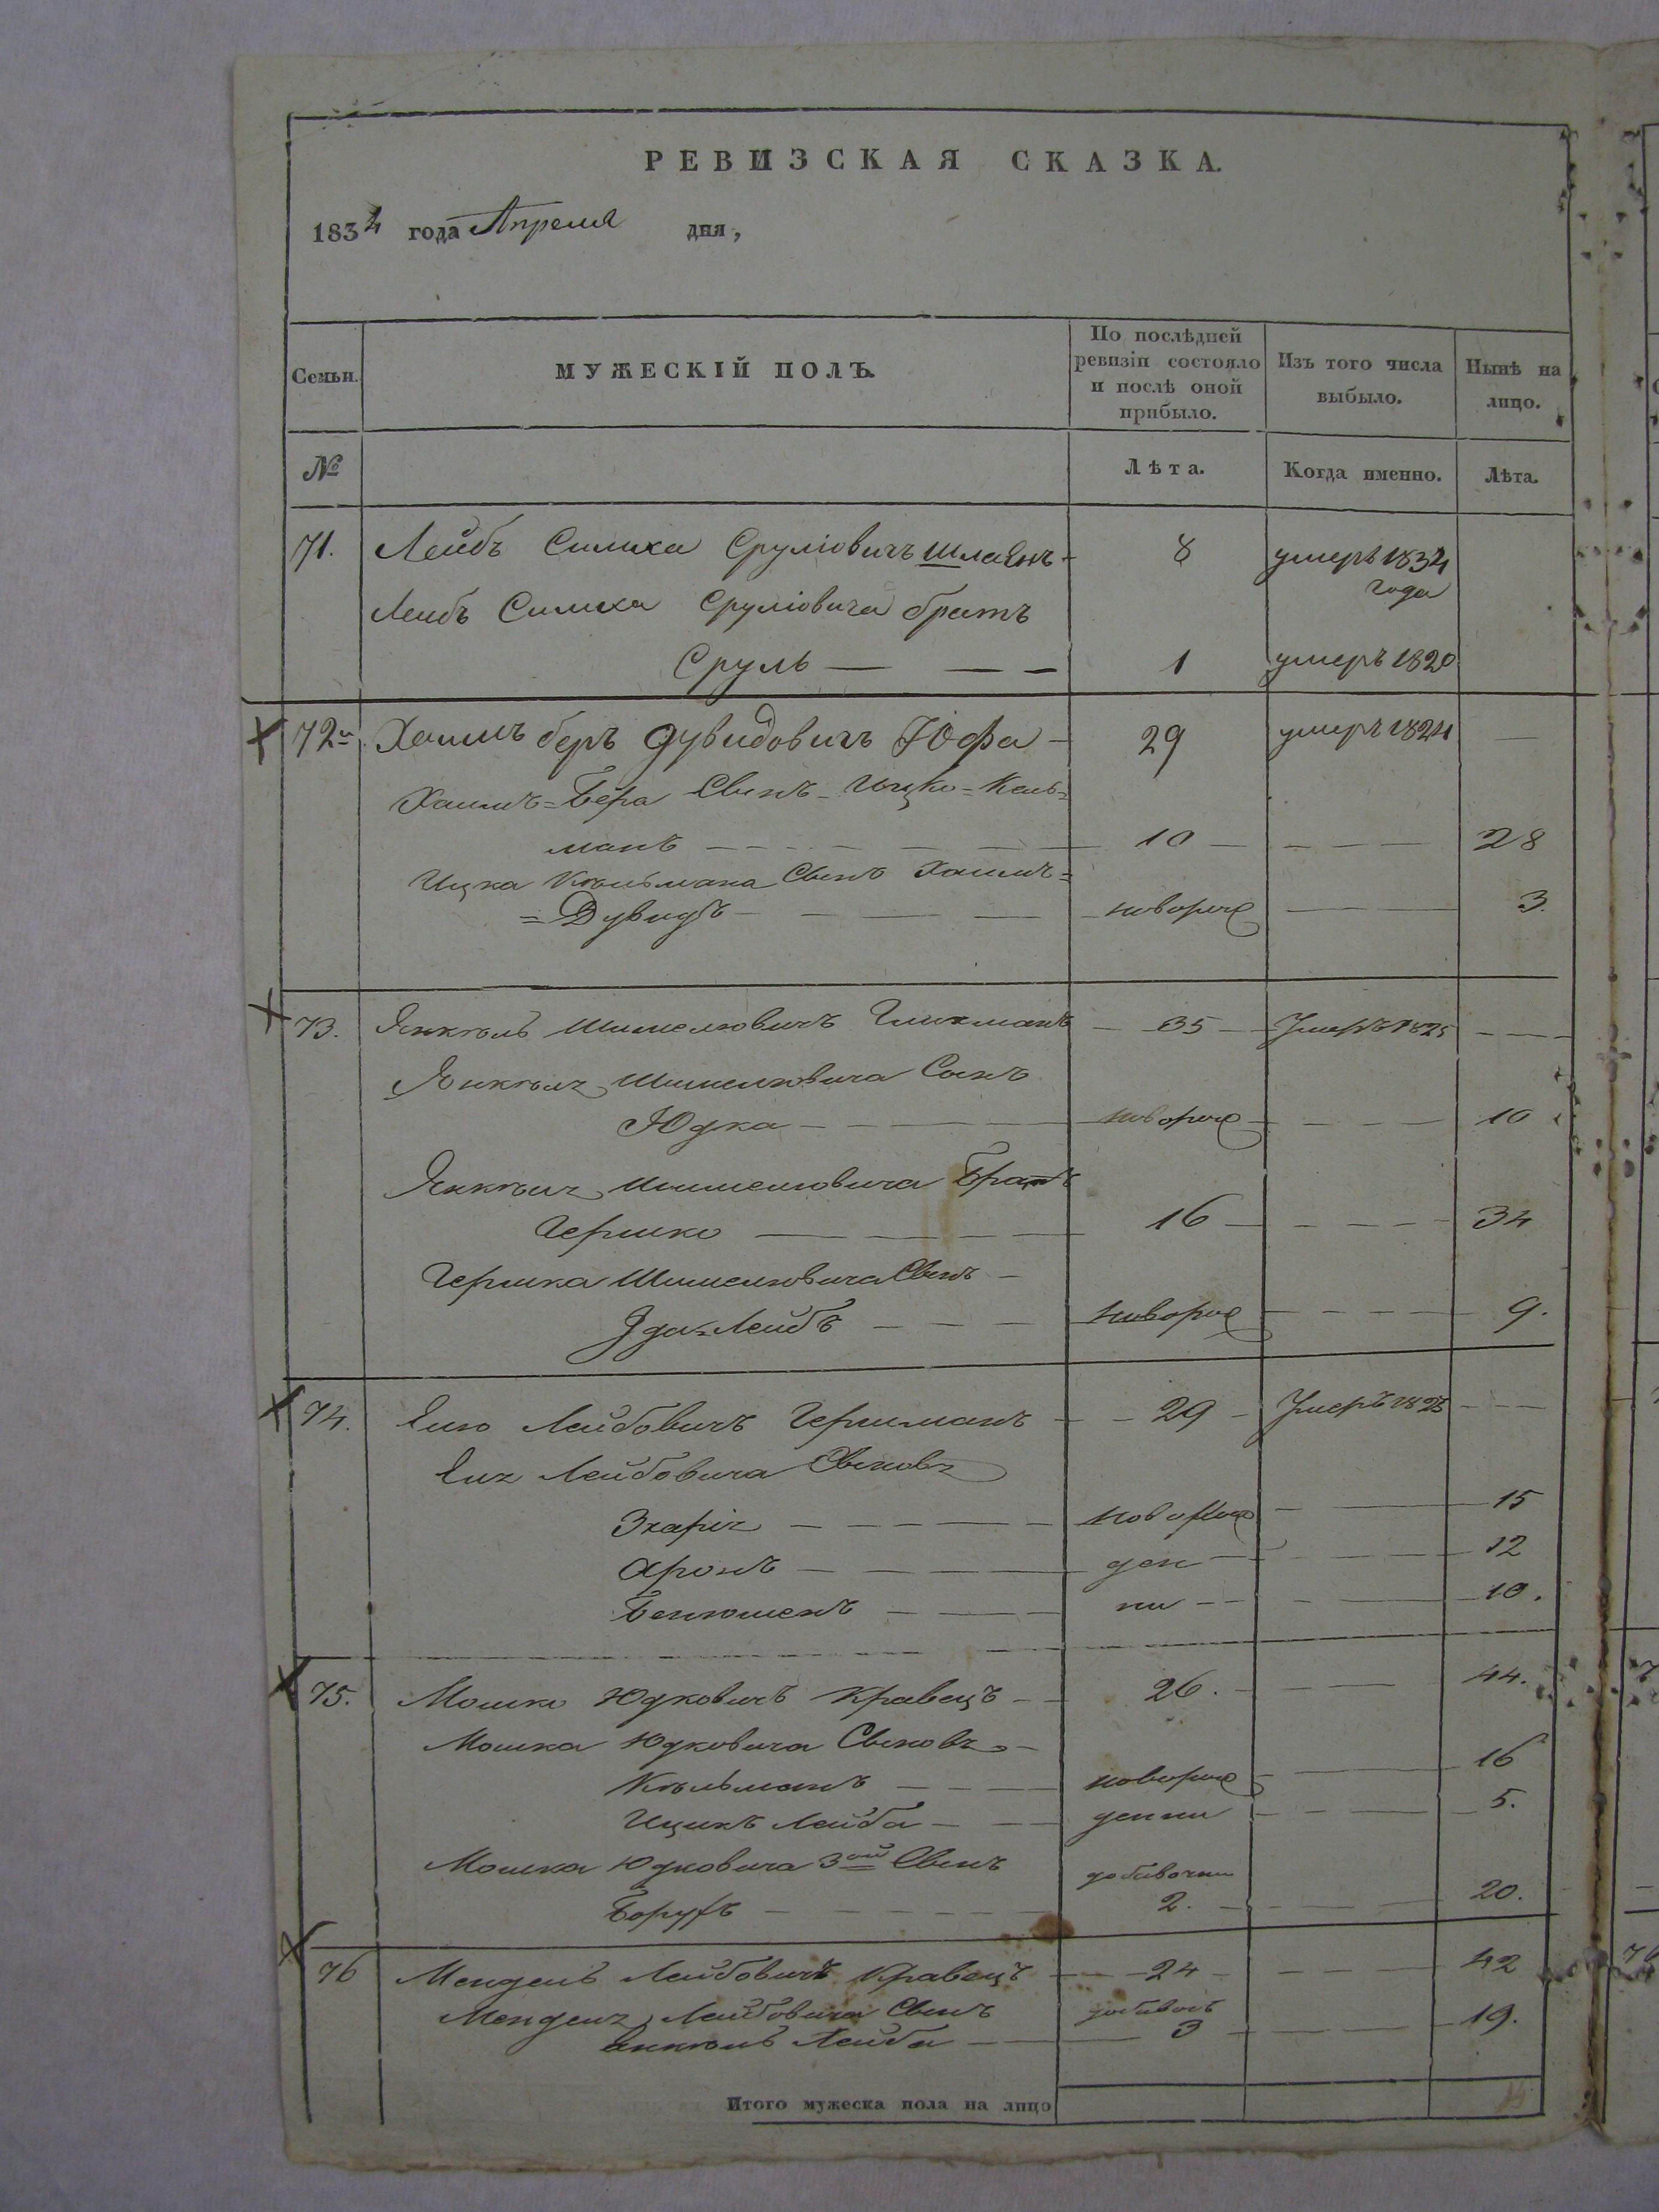 РЕВИЗСКАЯ СКАЗКА.
1834 года Апреля дня,
Семьи. МУЖЕСКІЙ ПОЛЪ. По послѣдней ревизіи состояло и послѣ оной прибыло. Изъ того числа выбыло. Нынѣ на лицо.
№ Лѣта. Когда именно. Лѣта.
71. Лейбъ Симха Сруліовичъ 8 умеръ 1834 года
Лейбъ Симха Сруліовича братъ
Сруль — — — 1 умеръ 1820
72 Хаимъ беръ Дувидовичъ Юфа — 29 умеръ 1824 —
Хаимъ=Бера Сынъ Ицко=Кель=
манъ — — — 10 — — — 28
Ицка Кельмана Сынъ Хаимъ=
=Дувидъ — — — новорож — 3.
73. Янкель Шмелювичъ Гликманъ — 35 — Умеръ 1825 — —
Янкеля Сынъ
Юдка — — — новорож — — — 10
Янкеля Братъ
Гершко — — — 16 — — — 34
Гершка Сынъ —
Лейбъ — — — новорож — — — 9.
74. Лейбовичъ Гершманъ — 29 — Умеръ — —
Лейбовича Сыновя
Зхарія — — — новорож — — 15
Аронъ — — — ден — — 12
— — — ни — — 10.
75. Мошко Юдковичъ Кравецъ — 26. — — 44.
Мошка Юдковича Сыновя —
Кельманъ — — новорож — — 16
Ицикъ Лейба — — денни — — — 5.
Мошка Юдковича 3ой Сынъ добавочни
Борухъ — — — 2. — — — 20.
76 Мендель Лейбовичъ Кравецъ — 24 — — — 42
Менделя Лейбовича Сынъ
Янкель Лейба — 3 — — — 19.
Итого мужеска пола на лицо